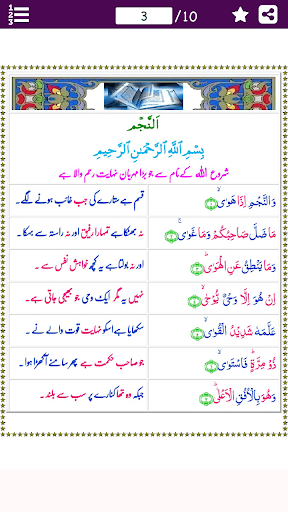 1
2
3
3 /10
اَلنَّجْم
بِسْمِ ٱللَّهِ ٱلرَّحْمَٰنِ ٱلرَّحِيمِ
شروع اللہ کے نام سے جو بڑا مہربان نہایت رحم والا ہے
وَالنَّجْمِ اِذَا هَوٰىۙ ۝۱ قسم ہے ستارے کی جب غائب ہونے لگے۔
مَا ضَلَّ صَاحِبُكُمْ وَمَا غَوٰىۚ ۝۲ نہ بھٹکا ہے تمہارا رفیق اور نہ راستہ سے بہکا۔
وَمَا يَنْطِقُ عَنِ الْهَوٰىؕ ۝۳ اور نہ بولتا ہے یہ کچھ خواہش نفس سے۔
اِنْ هُوَ اِلَّا وَحْيٌ يُّوْحٰىۙ ۝۴ نہیں یہ مگر ایک وحی جو بھیجی جاتی ہے۔
عَلَّمَهٗ شَدِيْدُ الْقُوٰىۙ ۝۵ سکھایا ہے اسکو نہایت قوت والے نے۔
ذُوْ مِرَّةٍؕ فَاسْتَوٰىۙ ۝۶ جو صاحب حکمت ہے پھر سامنے آکھڑا ہوا۔
وَهُوَ بِالْاُفُقِ الْاَعْلٰىؕ ۝۷ جبکہ وہ تھا کنارے پر سب سے بلند۔